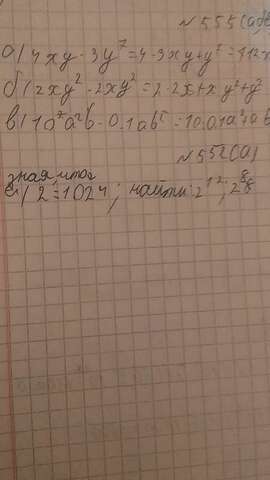 №555(абв
а) 4xy · 3y² = 4 · 3xy + y² = 412
б) 2xy² · 2xy² = 2 · 2x + x y² + y²
в) 10²a²b · 0.1ab² = 10.01a²ab
№552(а)
зная, что
а) 2 = 1024; найти: 2¹²; 2⁸